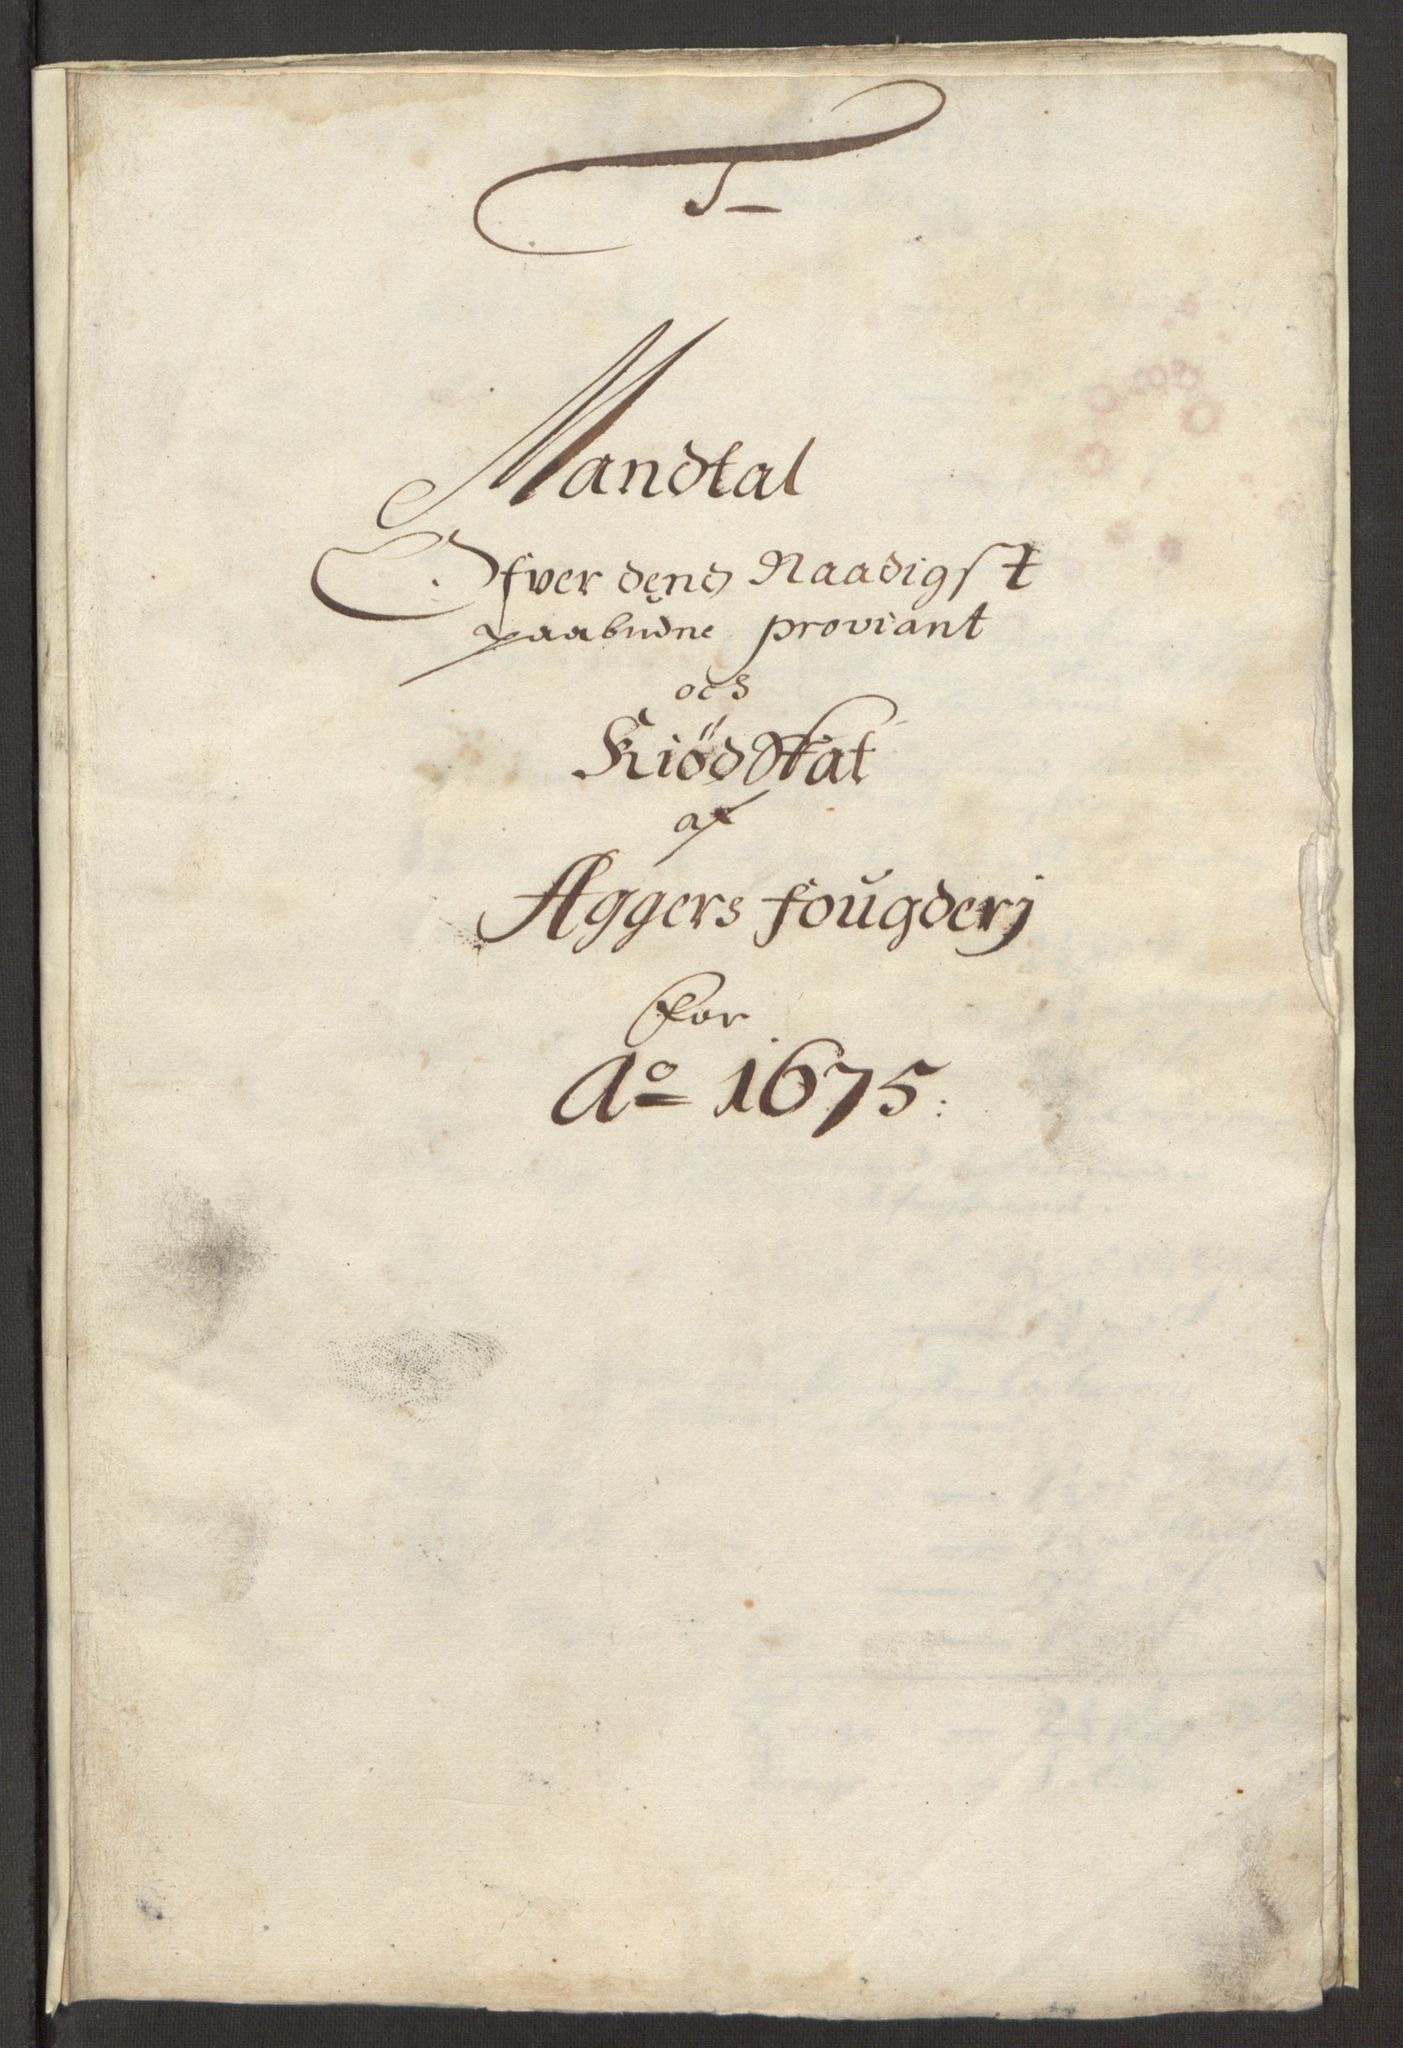 J
Mandtal
Ofver dend Naadigst
paabudne proviant
och
Kiöd Skat
af
Aggers fougderj
for
Ao 1675.